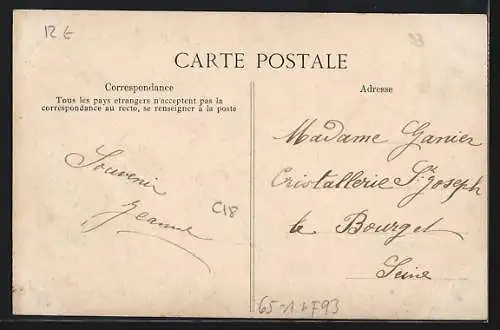 12 €
33
CARTE POSTALE
Correspondance
Tous les pays etrangers n'acceptent pas la
correspondance au recto, se renseigner à la poste
Adresse
Souvenir
Jeanne
C18
Madame Ganier
Cristallerie St Joseph
le Bourget
Seine
65-1 + F93